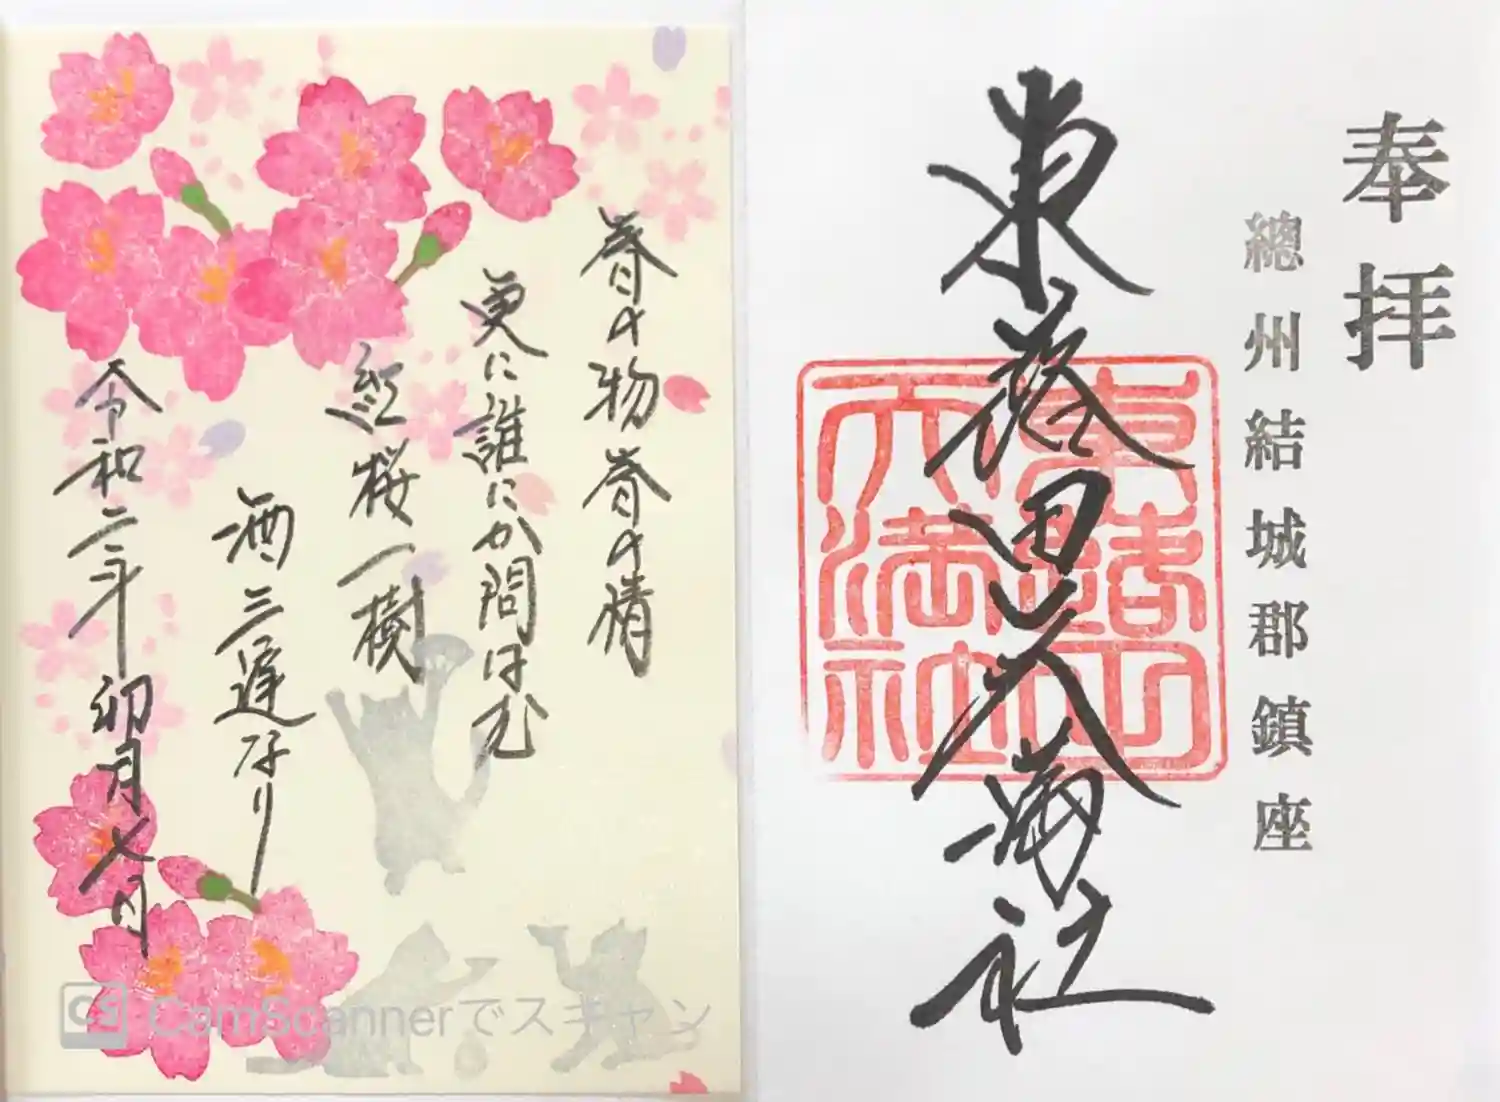 奉拝
總州結城郡鎮座
東蕗田天満社
春の物春の情
更に誰にか問はむ
紅桜一樹
酒三遅なり
令和二年卯月七日
CS CamScannerでスキャン